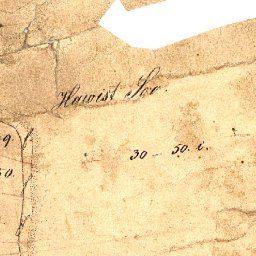 Hawist Soo.
9
30 – 50. i.
50.